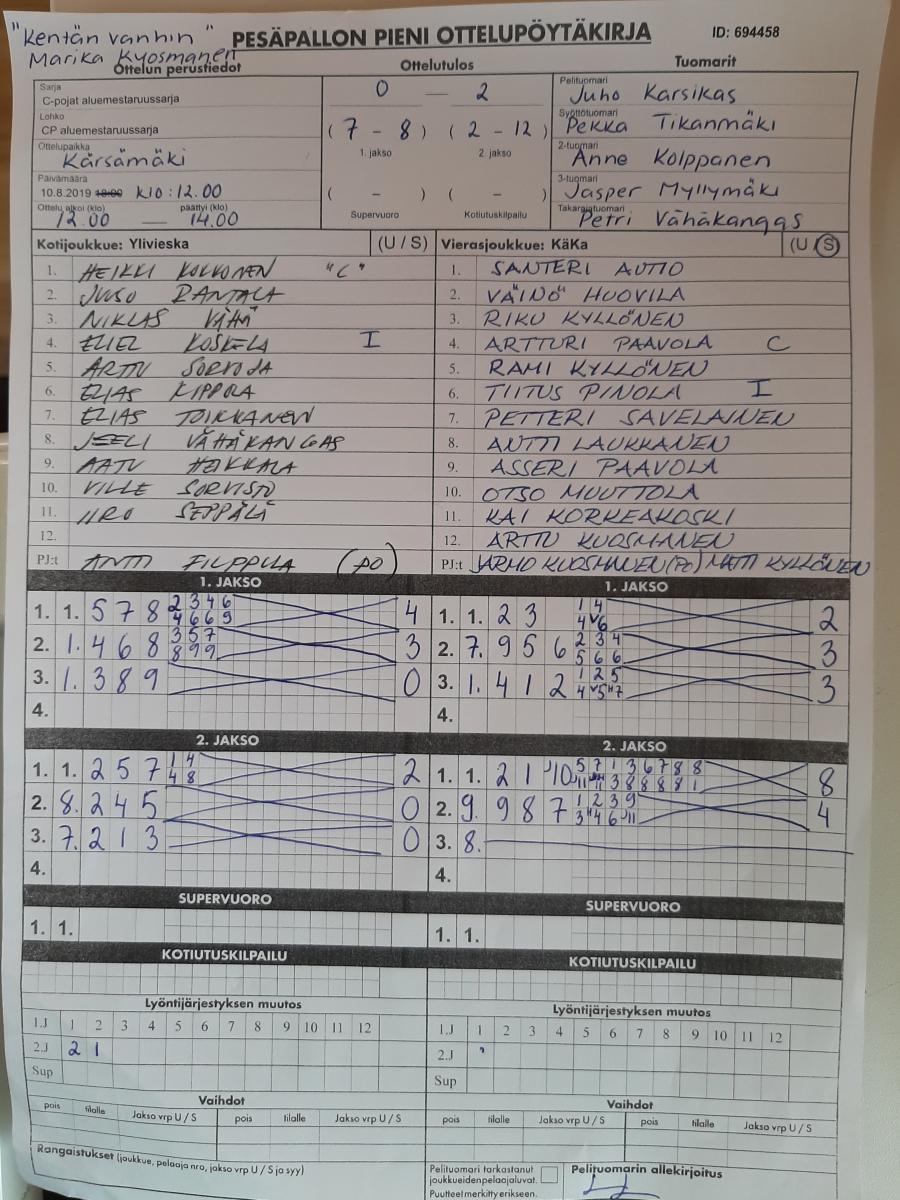 "Kentän vanhin"
Marika Kyosmanen
PESÄPALLON PIENI OTTELUPÖYTÄKIRJA
ID: 694458
Ottelun perustiedot
Ottelutulos
Tuomarit
Sarja
C-pojat aluemestaruussarja
Lohko
CP aluemestaruussarja
Ottelupaikka
Kärsämäki
Päivämäärä
10.8.2019 18:00 klo: 12.00
Ottelu alkoi (klo) päättyi (klo)
12.00 — 14.00
0 — 2
(7 - 8) (2 - 12)
1. jakso 2. jakso
( - ) ( - )
Supervuoro Kotiutuskilpailu
Pelituomari
Juho Karsikas
Syöttötuomari
Pekka Tikanmäki
2-tuomari
Anne Kolppanen
3-tuomari
Jasper Myllymäki
Takarajatuomari
Petri Vähäkangas
Kotijoukkue: Ylivieska (U / S)
1. HEIKKI KOKKONEN "C"
2. JUSO RANTALA
3. NIKLAS VÄHÄ
4. ELIEL KOSKELA I
5. ARTTU SORVOJA
6. ELIAS KIPPOLA
7. ELIAS TOIKKANEN
8. JEELI VÄHÄKANGAS
9. AATU HAKKALA
10. VILLE SORVISTO
11. IIRO SEPPÄLÄ
12.
PJ:t ANTTI FILPPULA (PO)
Vierasjoukkue: KäKa (U / S)
1. SANTERI AUTIO
2. VÄINÖ HUOVILA
3. RIKU KYLLÖNEN
4. ARTTURI PAAVOLA C
5. RAMI KYLLÖNEN
6. TIITUS PINOLA I
7. PETTERI SAVELAINEN
8. ANTTI LAUKKANEN
9. ASSERI PAAVOLA
10. OTSO MUUTTOLA
11. KAI KORKEAKOSKI
12. ARTTU KUOSMANEN
PJ:t JARMO KUOSMANEN (PO) MATTI KYLLÖNEN
1. JAKSO
1. 1. 5 7 8 2 3 4 6 4
4 6 6 9
2. 1. 4 6 8 3 5 7 3
8 9 9
3. 1. 3 8 9 0
4.
1. JAKSO
1. 1. 2 3 1 4 2
4 v6
2. 7. 9 5 6 2 3 4 3
5 6 6
3. 1. 4 1 2 1 2 5 3
4 v5 "7
4.
2. JAKSO
1. 1. 2 5 7 1 4 2
4 8
2. 8. 2 4 5 0
3. 7. 2 1 3 0
4.
2. JAKSO
1. 1. 2 1 10 5 7 1 3 6 7 8 8 8
11 11 3 8 8 8 8 1
2. 9. 9 8 7 1 2 3 9 4
3 "4 6 11
3. 8.
4.
SUPERVUORO
1. 1.
SUPERVUORO
1. 1.
KOTIUTUSKILPAILU
KOTIUTUSKILPAILU
Lyöntijärjestyksen muutos
1.J 1 2 3 4 5 6 7 8 9 10 11 12
2.J 2 1
Sup
Lyöntijärjestyksen muutos
1.J 1 2 3 4 5 6 7 8 9 10 11 12
2.J
Sup
Vaihdot
pois tilalle Jakso vrp U / S pois tilalle Jakso vrp U / S
Vaihdot
pois tilalle Jakso vrp U / S pois tilalle Jakso vrp U / S
Rangaistukset (joukkue, pelaaja nro, jakso vrp U / S ja syy)
Pelituomari tarkastanut
joukkueiden pelaajaluvat.
Puutteet merkitty erikseen.
Pelituomarin allekirjoitus